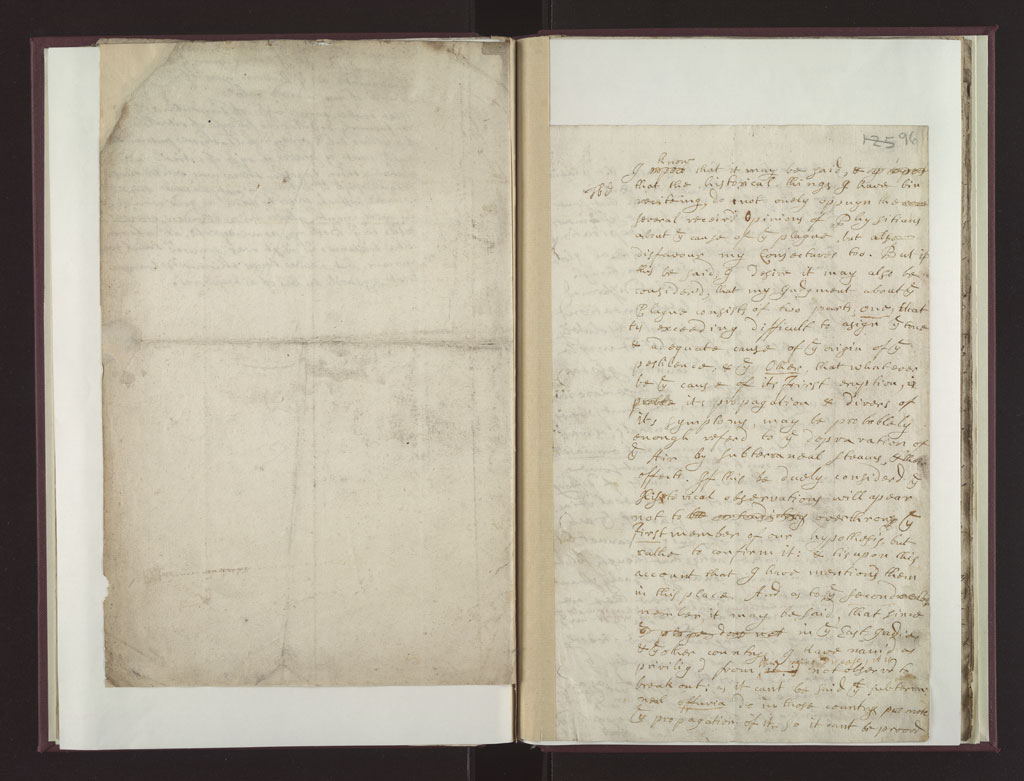 125 96
know
I that it may be said,
that the historical things I have bin
reciteing, do not onely oppugn the
several receiv'd Opinions of Physitians
about ye cause of ye plague, but also
disfavour my Conjectures too. But if
this be said, I desire it may also be
considered, that my Judgment about ye
Plague consists of two parts, one, that
tis exceeding difficult to asign ye true
& adequate cause of ye origin of ye
pestilence, & ye Other, that what ever
be ye cause of its First eruption,
its propagation & divers of
its symptoms, may be probablely
enough referd to ye depravation of
ye Air by subterraneal steams, &
effects. If this be duely considerd ye
Historical observations will apear
not to overthrow ye
First member of our hypothesis, but
rathe to confirm it: & tis upon this
account that I have mentiond them
in this place. And as to ye second
member it may be said, that since
ye plague dos not in ye East Indies
& ye other countrys I have nam'd as
privilig'd from, not observd to
break out; as it cant be said yt subterra
neal effluvia do in those countrys promote
ye propagation of it, so it cant be provd